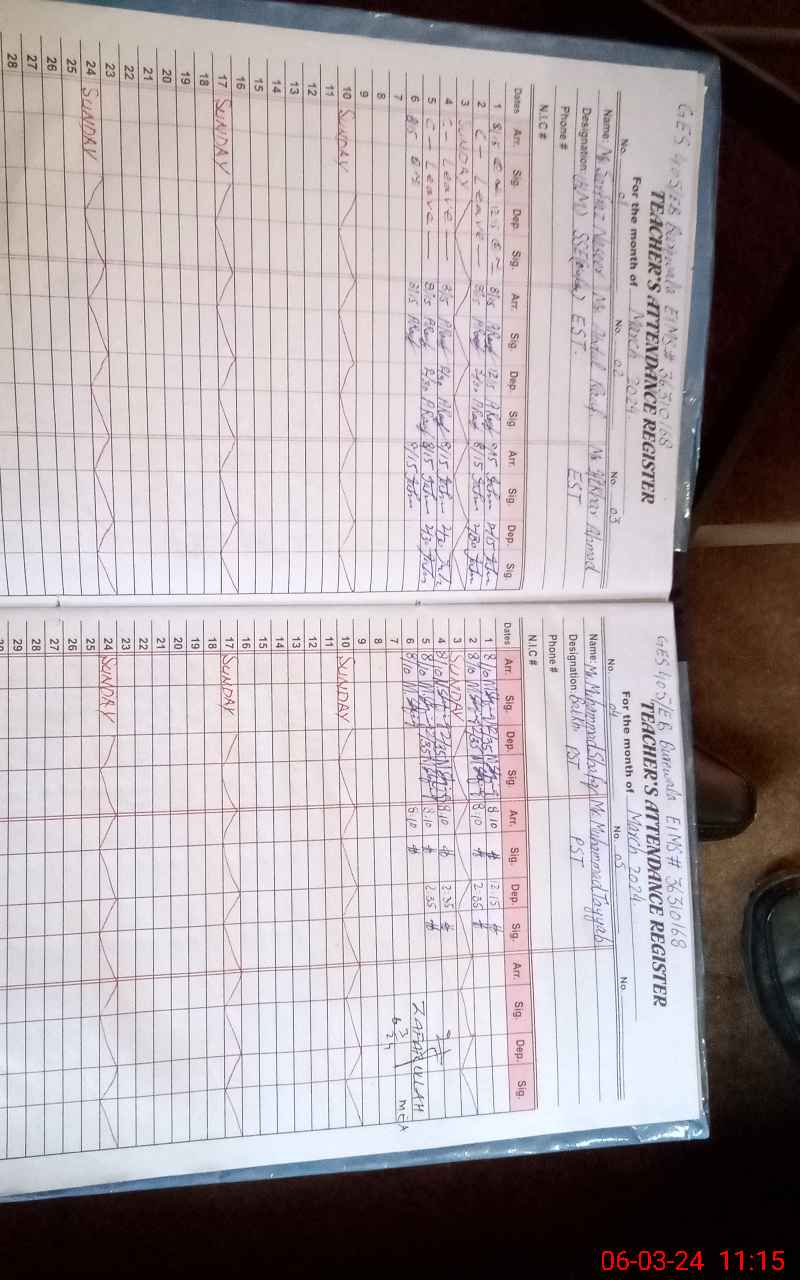 GES 405/EB Burewala EIMS# 36310168
TEACHER'S ATTENDANCE REGISTER
For the month of March 2024
No. 01 No. 02 No. 03
Name: Mr Sarfraz Naseer Mr Abdul Rauf Mr Iftkhar Ahmad
Designation: (HM) SSE EST. EST
Phone #
N.I.C #
Dates Arr. Sig. Dep. Sig. Arr. Sig. Dep. Sig. Arr. Sig. Dep. Sig.
1 8/15 12/15 8/15 ARauf 12/15 ARauf 8/15 12/15
2 C - Leave - 8/15 ARauf 2/30 ARauf 8/15 2/30
3 SUNDAY
4 C - Leave - 8/15 ARauf 2/30 ARauf 8/15 2/30
5 C - Leave - 8/15 ARauf 2/30 ARauf 8/15 2/30
6 8/15 8/15 ARauf 8/15
7
8
9
10 SUNDAY
11
12
13
14
15
16
17 SUNDAY
18
19
20
21
22
23
24 SUNDAY
25
26
27
28
GES 405/EB Burewala EIMS# 36310168
TEACHER'S ATTENDANCE REGISTER
For the month of March 2024
No. 04 No. 05 No.
Name: Mr Muhammad Mr. Muhammad Tayyab
Designation: PST PST
Phone #
N.I.C #
Dates Arr. Sig. Dep. Sig. Arr. Sig. Dep. Sig. Arr. Sig. Dep. Sig.
1 8/10 12/35 8:10 12:15
2 8/10 2/35 8:10 2:35
3 SUNDAY
4 8/10 2/35 8:10 2:35
5 8/10 2/35 8:10 2:35
6 8/10 8:10 ZAFAR ULLAH MEA
7 6 3 24
8
9
10 SUNDAY
11
12
13
14
15
16
17 SUNDAY
18
19
20
21
22
23
24 SUNDAY
25
26
27
28
29
06-03-24 11:15